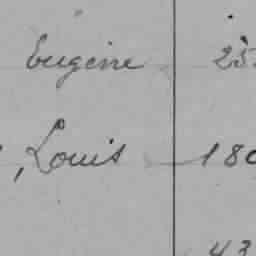 Eugène 25
, Louis 180
43